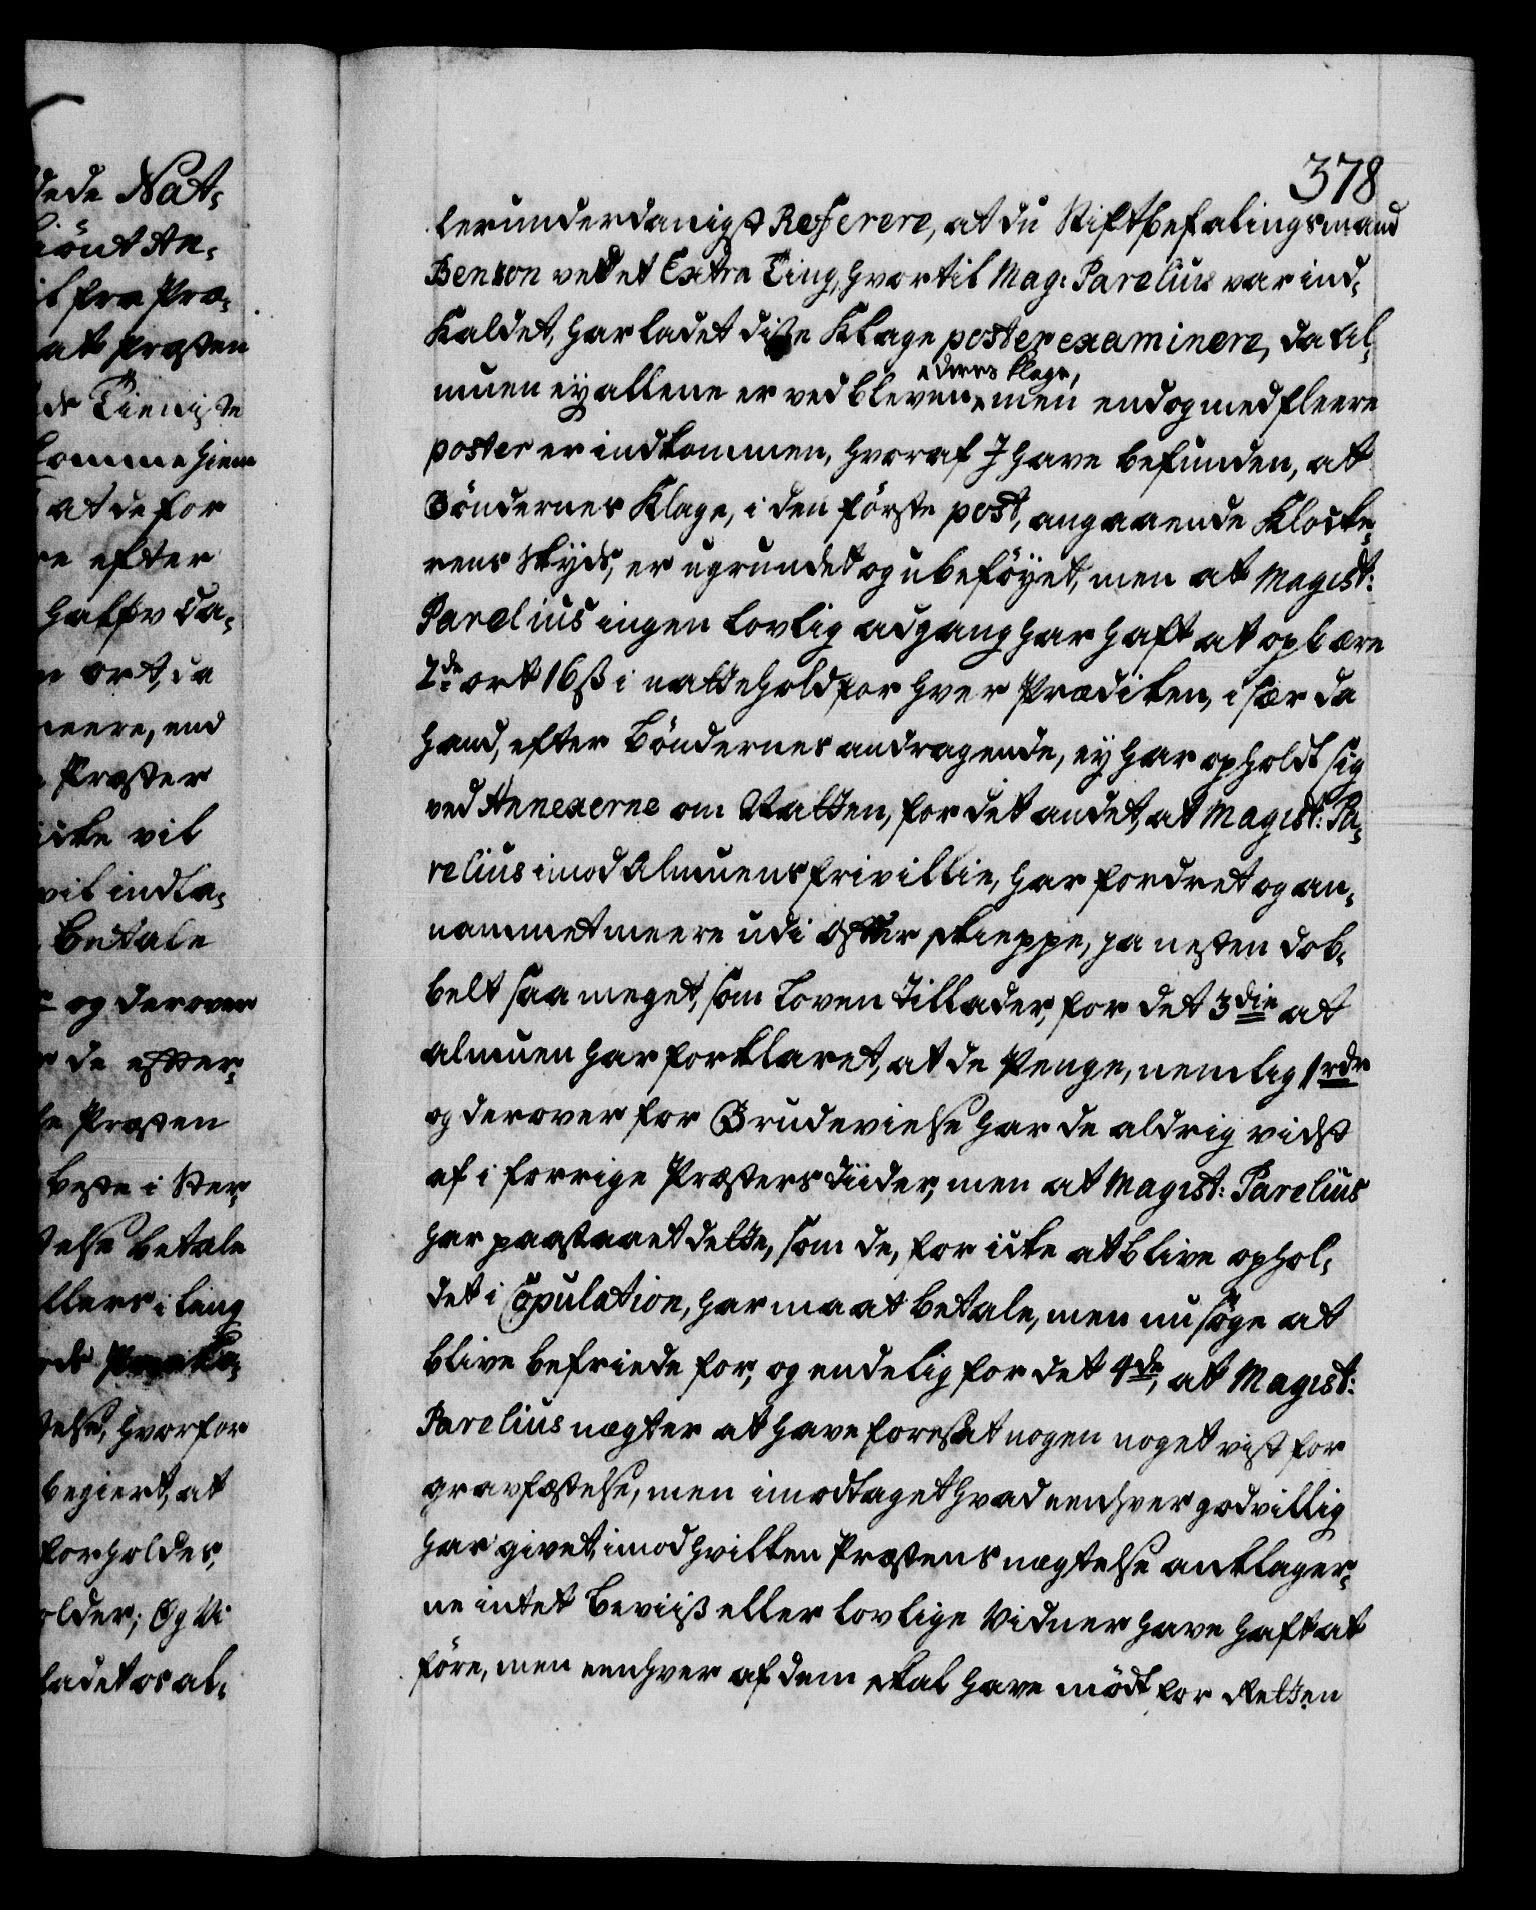 378
lerunderdanigst Referere, at du Stiftbefalingsmand
Benzon ved et Extra Ting, hvortil Mag: Parelius var ind¬
kaldet, har ladet disse Klage poster examinere, da Al¬
muen ey allene er ved bleven deres klage, men endog med fleere
poster er indkommen, hvoraf I have befunden, at
Böndernes Klage, i den förste post, angaaende Klocke¬
rens Skyds, er ugrundet og ubeföyet, men at Magist:
Parelius ingen lovlig adgang har haft at opbære
2de ort 16 ß i nattehold for hver Prædiken, i sær da
hand, efter Böndernes andragende, ey har opholdt sig
ved Annexerne om Natten, for det andet, at Magist: Pa¬
relius imod Almuens frivillie, har fordret og an¬
nammet meere udi Oster skieppe, ja nesten dob¬
belt saa meget, som Loven tillader, for det 3die at
almuen har forklaret, at de Penge, nemlig 1 rdr
og derover for Brudevielse har de aldrig vidst
af i forrige Præsters tiider, men at Magist: Parelius
har paastaaet dette, som de, for icke at blive ophol¬
det i Copulation, har maat betale, men nu søge at
blive befriede for, og endelig for det 4de, at Magist:
Parelius nægter at have foresat nogen noget vist for
gravfæstelse, men imodtaget hvad eenhver godvillig
har givet, imod hvilken Præstens nægtelse anklager¬
ne intet Beviis eller lovlige Vidner have haft at
före, men eenhver af dem skal have mödt for Retten
dede Nat¬
siönt An¬
il fra Præ¬
at Præsten
ds Tieniste
komme hiem
at de for
re efter
half Da¬
n ort, da
meere, end
Præster
icke vil
vil indla¬
Betale
og derover
r de efter¬
e Præsten
beste i Ster
telse betale
llers i lang
telse, hvorfor
begiert, at
forholdes,
older; Og Vi
ladet os al¬